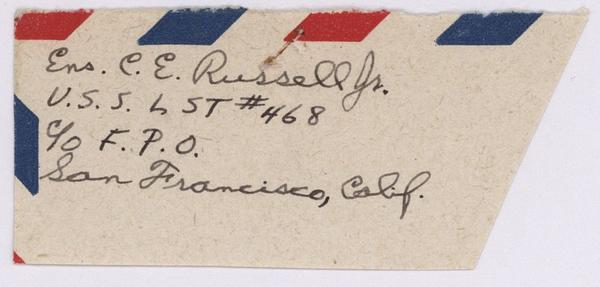 Ens. C. E. Russell Jr.
U.S.S. LST #468
c/o F.P.O.
San Francisco, Calif.